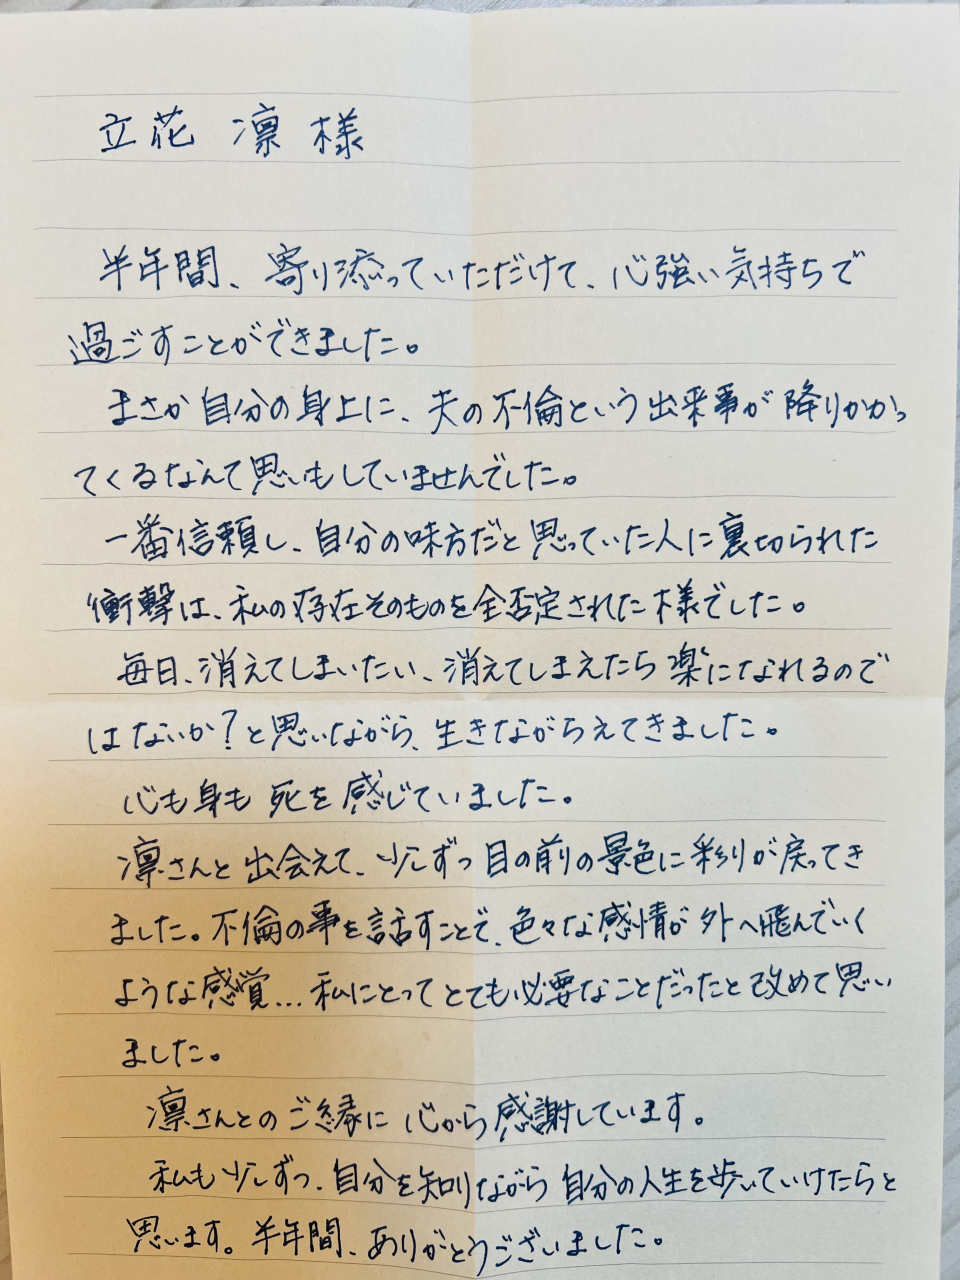 立花 凛 様
半年間、寄り添っていただけて、心強い気持ちで
過ごすことができました。
まさか自分の身上に、夫の不倫という出来事が降りかかっ
てくるなんて思いもしていませんでした。
一番信頼し、自分の味方だと思っていた人に裏切られた
衝撃は、私の存在そのものを全否定された様でした。
毎日、消えてしまいたい、消えてしまえたら楽になれるので
はないか?と思いながら、生きながらえてきました。
心も身も死を感じていました。
凛さんと出会えて、少しずつ目の前の景色に彩りが戻ってき
ました。不倫の事を話すことで、色々な感情が外へ飛んでいく
ような感覚...私にとってとても必要なことだったと改めて思い
ました。
凛さんとのご縁に心から感謝しています。
私も少しずつ、自分を知りながら自分の人生を歩いていけたらと
思います。半年間、ありがとうございました。